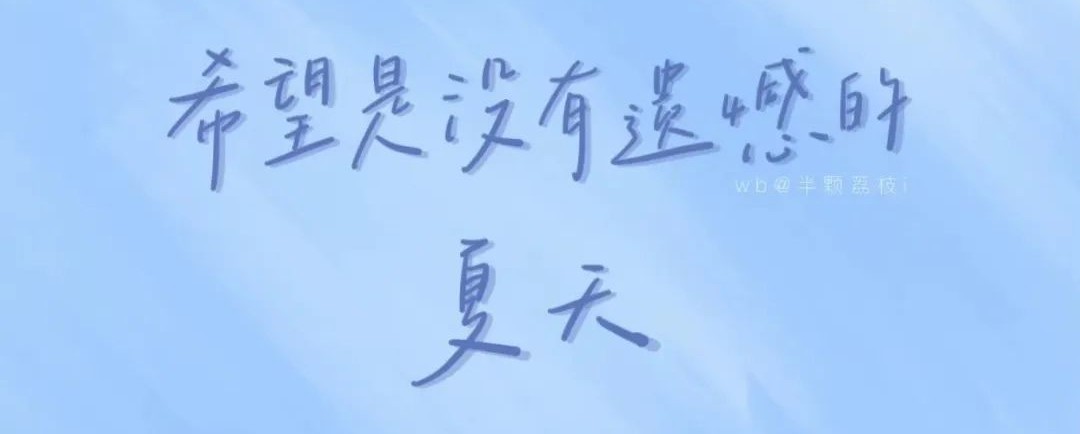 希望是没有遗憾的
wb@半颗荔枝i
夏天